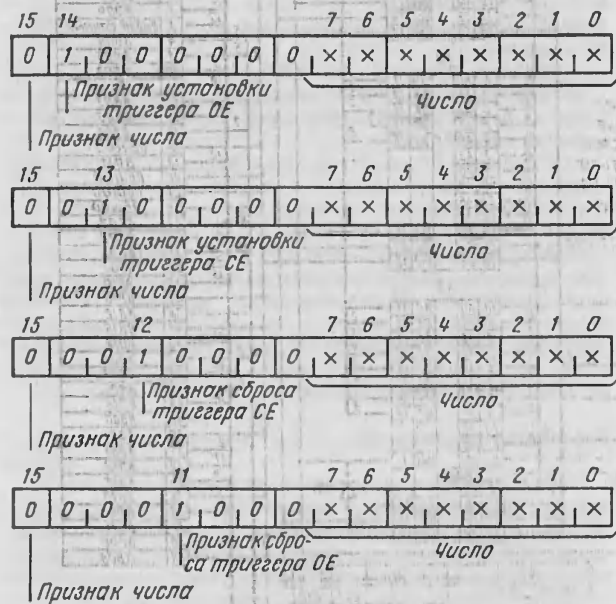 15 14 7 6 5 4 3 2 1 0
0 1 0 0 0 0 0 0 × × × × × × × ×
Признак установки
триггера OE
Число
Признак числа
15 13 7 6 5 4 3 2 1 0
0 0 1 0 0 0 0 0 × × × × × × × ×
Признак установки
триггера CE
Число
Признак числа
15 12 7 6 5 4 3 2 1 0
0 0 0 1 0 0 0 0 × × × × × × × ×
Признак сброса
триггера CE
Число
Признак числа
15 11 7 6 5 4 3 2 1 0
0 0 0 0 1 0 0 0 × × × × × × × ×
Признак сбро-
са триггера OE
Число
Признак числа